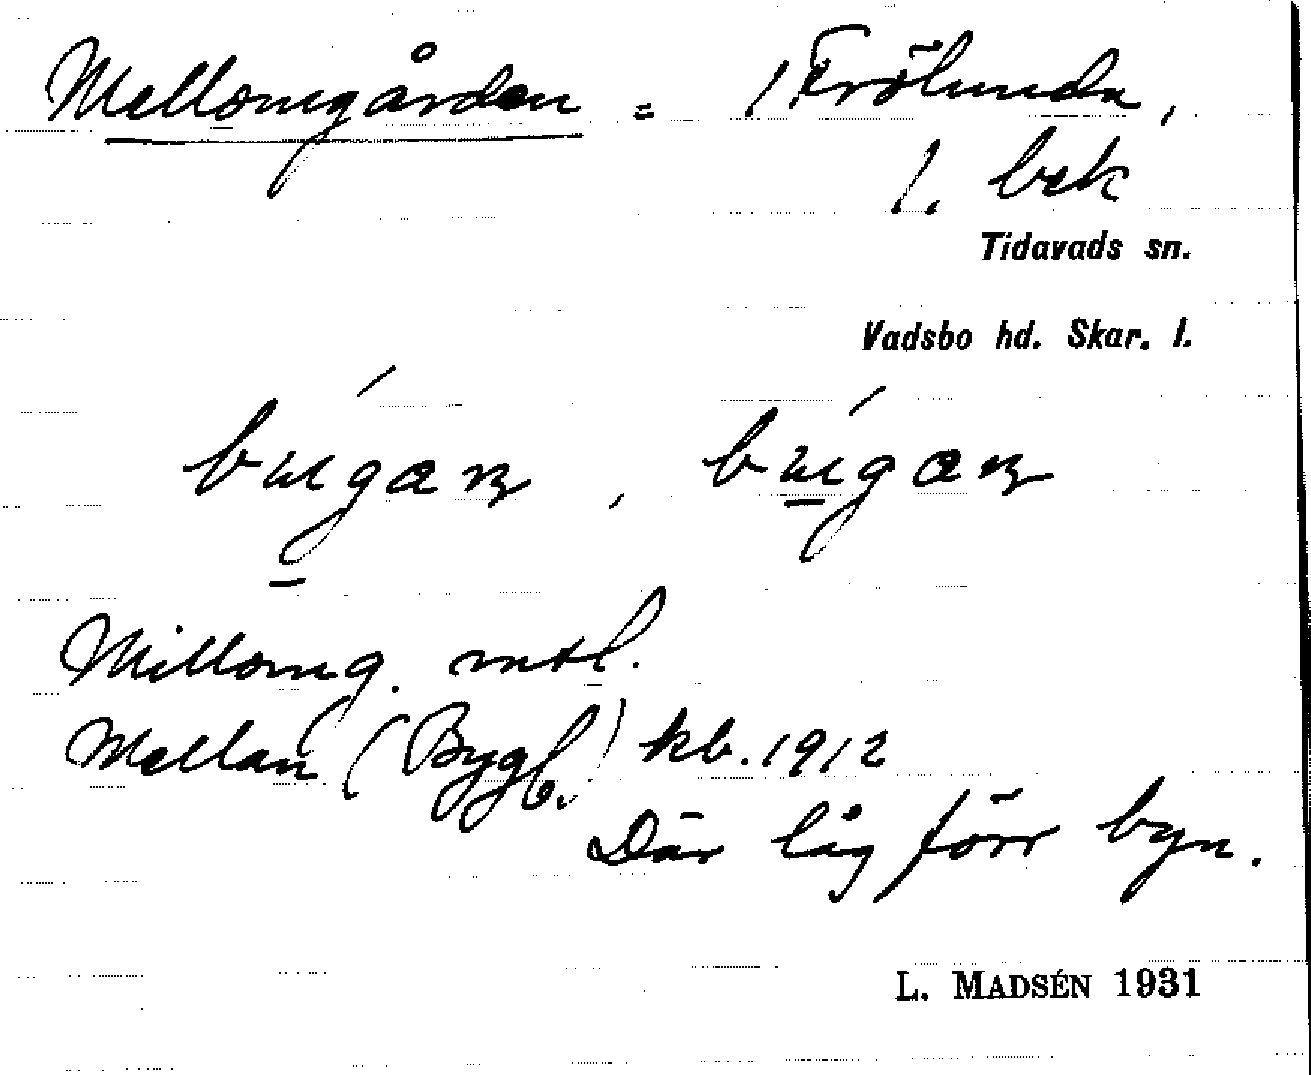 Mellomgården = i Frölunda,
1. bek
Tidavads sn.
Vadsbo hd. Skar. l.
bųgaɳ, bųgaɳ
Millomg. mtl.
Mellan (Bygl.) kb. 1912
Där låg förr byn.
L. MADSÉN 1931